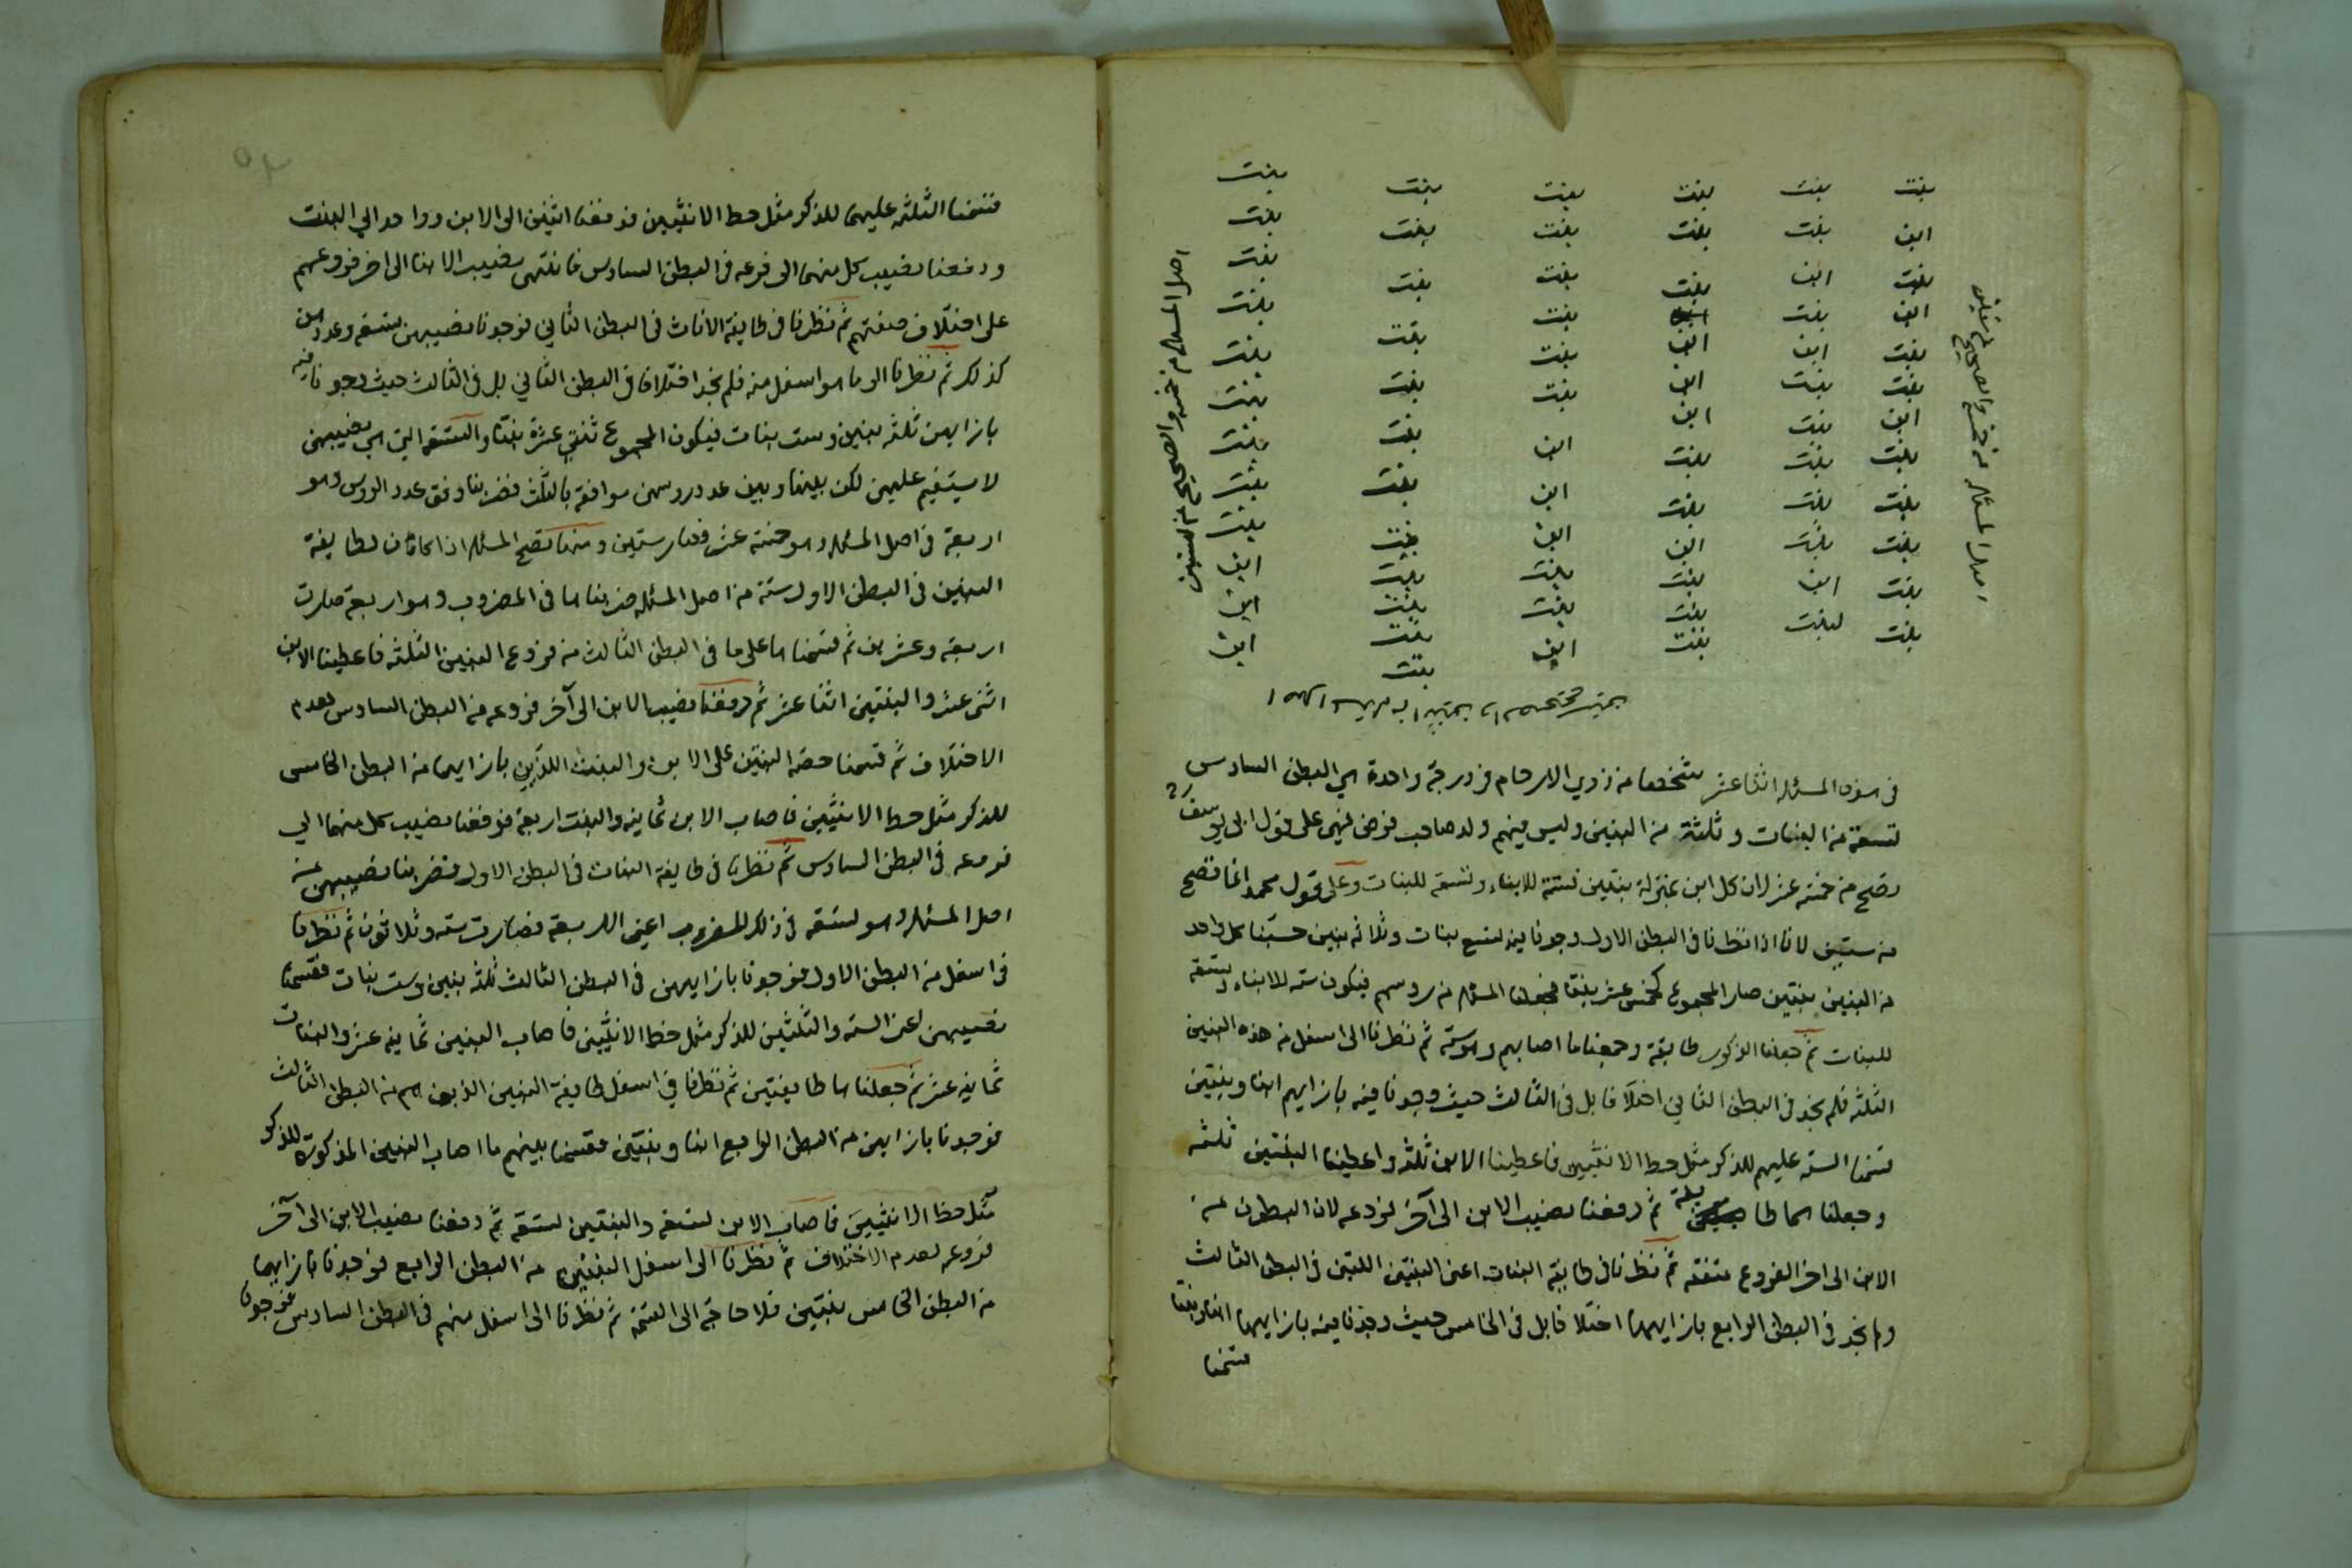 بنت بنت بنت بنت بنت بنت
ابن بنت بنت بنت بنت بنت
بنت ابن بنت بنت بنت بنت
ابن بنت ابن بنت بنت بنت
بنت ابن ابن بنت بنت بنت
بنت بنت ابن بنت بنت بنت
ابن بنت بنت ابن بنت بنت
بنت بنت بنت ابن بنت بنت
بنت بنت ابن ابن بنت بنت
بنت بنت بنت بنت بنت ابن
بنت ابن بنت بنت بنت ابن
بنت بنت بنت ابن بنت ابن
بنت
اصل المسئلة من خمسة عشر والصحيح من ستين
فى هذه المسئلة اثنا عشر شخصا من ذوي الارحام فى درجة واحدة هي البطن السادس
تسعة من البنات وثلثة من البنين وليس فيهم ولد صاحب فرض فهي على قول ابى يوسف رح
تصح من خمسة عشر لان كل ابن بمنزلة بنتين فستة للابناء وتسعة للبنات وعلى قول محمد انما تصح
من ستين لانا اذا نظرنا فى البطن الاول وجدنا فيه تسع بنات وثلاثة بنين حسبنا كل واحد
من البنين بنتين صار المجموع كخمس عشر بنتا فجعلنا المسئلة من رؤسهم فيكون ستة للابناء وتسعة
للبنات ثم جعلنا الذكور طايفة وجمعنا ما اصابهم وهو ستة ثم نظرنا الى اسفل من هذه البنين
الثلثة فلم نجد فى البطن الثاني اختلافا بل فى الثالث حيث وجدنا فيه بازايهم ابنا وبنتين
قسمنا الستة عليهم للذكر مثل حظ الانثيين فاعطينا الابن ثلثة واعطينا البنتين ثلثة
وجعلناهما طايفة ثم دفعنا نصيب الابن الى آخر فروعه لان البطون من
الابن الى اخر الفروع متفقة ثم نظرنا فى طايفة البنات اعنى البنتين اللتين فى البطن الثالث
ولم نجد فى البطن الرابع بازايهما اختلافا بل فى الخامس حيث وجدنا فيه بازايهما ابنا وبنتا
قسمنا
قسمنا الثلثة عليهما للذكر مثل حظ الانثيين فدفعنا اثنين الى الابن وواحدا الي البنت
ودفعنا نصيب كل منهما الى فرعه فى البطن السادس فانتهى نصيب الابنا الى اخر فروعهم
على اختلاف صفتهم ثم نظرنا فى طايفة الاناث فى البطن الثاني فوجدنا نصيبهن تسعة وعددهن
كذلك ثم نظرنا الى ما هو اسفل منه فلم نجد اختلافا فى البطن الثاني بل فى الثالث حيث وجدنا فيه
بازايهن ثلثة بنين وست بنات فيكون المجموع اثنتي عشرة بنتا والتسعة التي هي نصيبهن
لا يستقيم عليهن لكن بينها وبين عدد رؤسهن موافقة بالثلث فضربنا وفق عدد الرؤس وهو
اربعة فى اصل المسئلة وهو خمسة عشر فصار ستين ومنها تصح المسئلة اذا كان لطايفة
البنين فى البطن الاول ستة من اصل المسئلة ضربناها فى المضروب وهو اربعة صارت
اربعة وعشرين ثم قسمناها على ما فى البطن الثالث من فروع البنين الثلثة فاعطينا الابن
اثنى عشر والبنتين اثنا عشر ثم دفعنا نصيب الابن الى آخر فروعه من البطن السادس لعدم
الاختلاف ثم قسمنا حصة البنتين على الابن والبنت اللذين بازايهما من البطن الخامس
للذكر مثل حظ الانثيين فاصاب الابن ثمانية والبنت اربعة فدفعنا نصيب كل منهما الي
فرعه فى البطن السادس ثم نظرنا فى طايفة البنات فى البطن الاول فضربنا نصيبهن من
اصل المسئلة وهو تسعة فى ذلك المضروب اعنى الاربعة فصارت ستة وثلاثون ثم نظرنا
فى اسفل من البطن الاول فوجدنا بازايهن فى البطن الثالث ثلثة بنين وست بنات فقسمنا
نصيبهن اعنى الستة والثلثين للذكر مثل حظ الانثيين فاصاب البنين ثمانية عشر والبنات
ثمانية عشر ثم جعلناها طايفتين ثم نظرنا في اسفل طايفة البنين الذين هم من البطن الثالث
فوجدنا بازايهن من البطن الرابع ابنا وبنتين فقسمنا بينهم ما اصاب البنين المذكورة للذكر
مثل حظ الانثيين فاصاب الابن تسعة والبنتين تسعة ثم دفعنا نصيب الابن الى آخر
فروعه لعدم الاختلاف ثم نظرنا الى اسفل البنتين من البطن الرابع فوجدنا بازايهما
من البطن الخامس بنتين فلا حاجة الى القسمة ثم نظرنا الى اسفل منهم فى البطن السادس فوجدنا